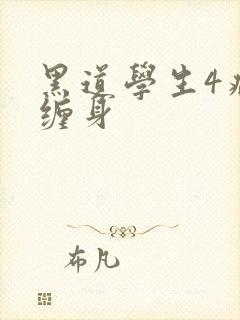 黑道學生4
缠身
布凡